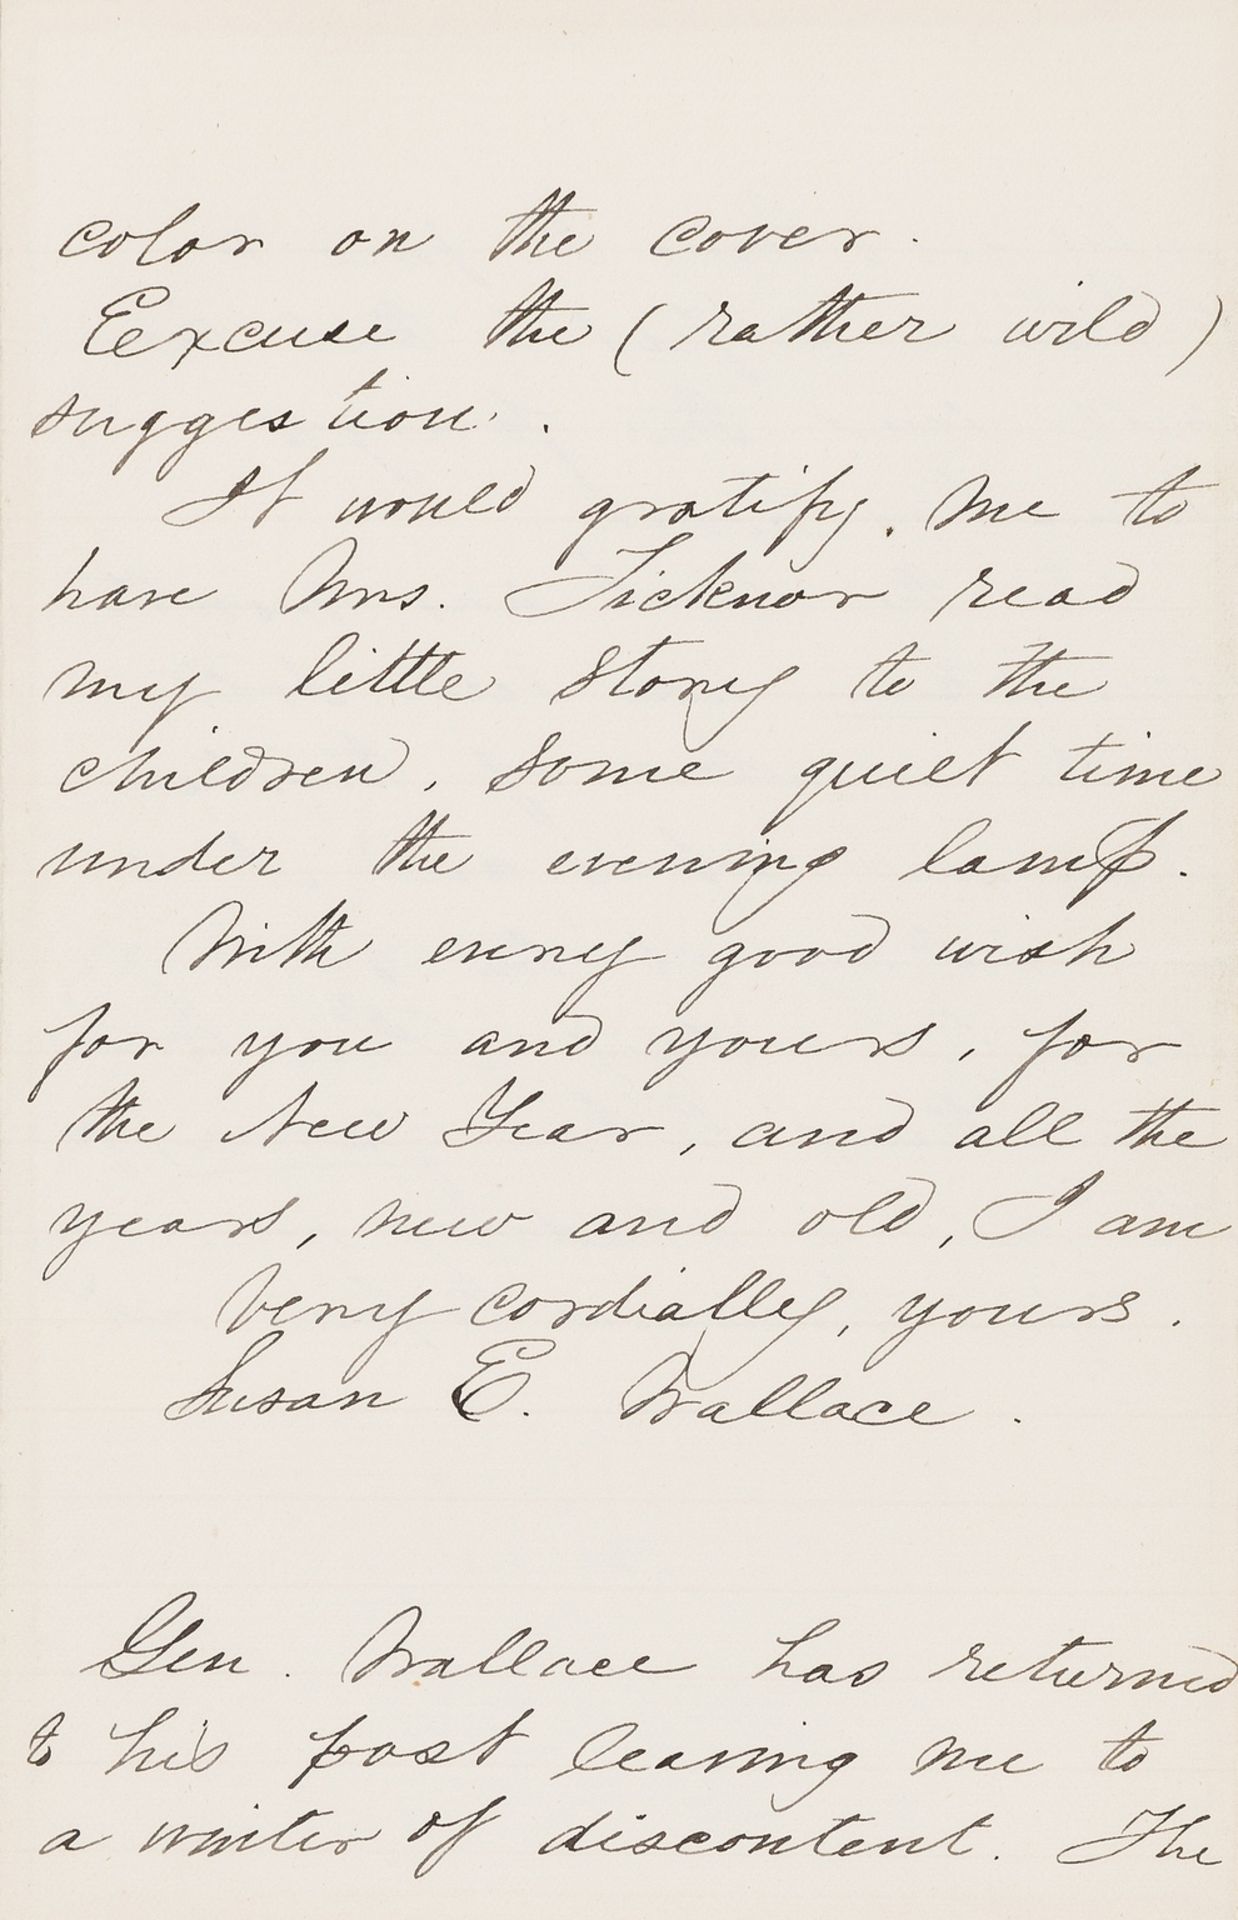 color on the cover.
Excuse the (rather wild)
suggestion.
It would gratify me to
have Mrs. Ticknor read
my little story to the
children, some quiet time
under the evening lamp.
With every good wish
for you and yours, for
the New Year, and all the
years, new and old, I am
Very cordially, yours.
Susan E. Wallace.
Gen. Wallace has returned
to his post leaving me to
a winter of discontent. The